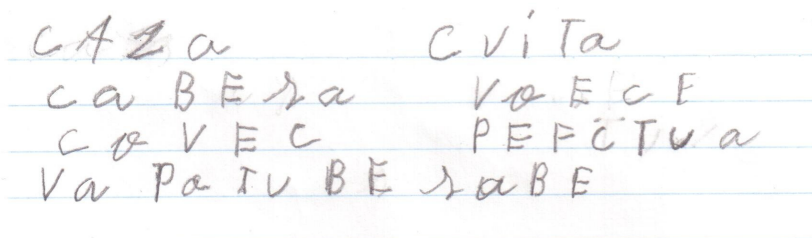 CAZa CViTa
CaBEra VoECE
CoVEC PEFCTVa
Va PaTVBE raBE